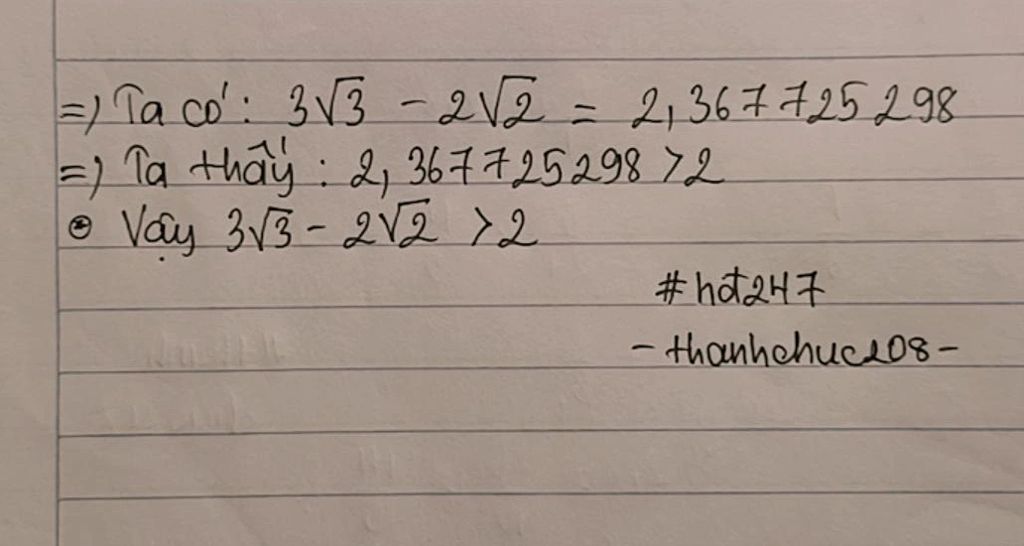 =) Ta có: 3√3 - 2√2 = 2,367725298
=) Ta thấy: 2,367725298 > 2
⊛ Vậy 3√3 - 2√2 > 2
#hđt247
- thanhchuc208 -